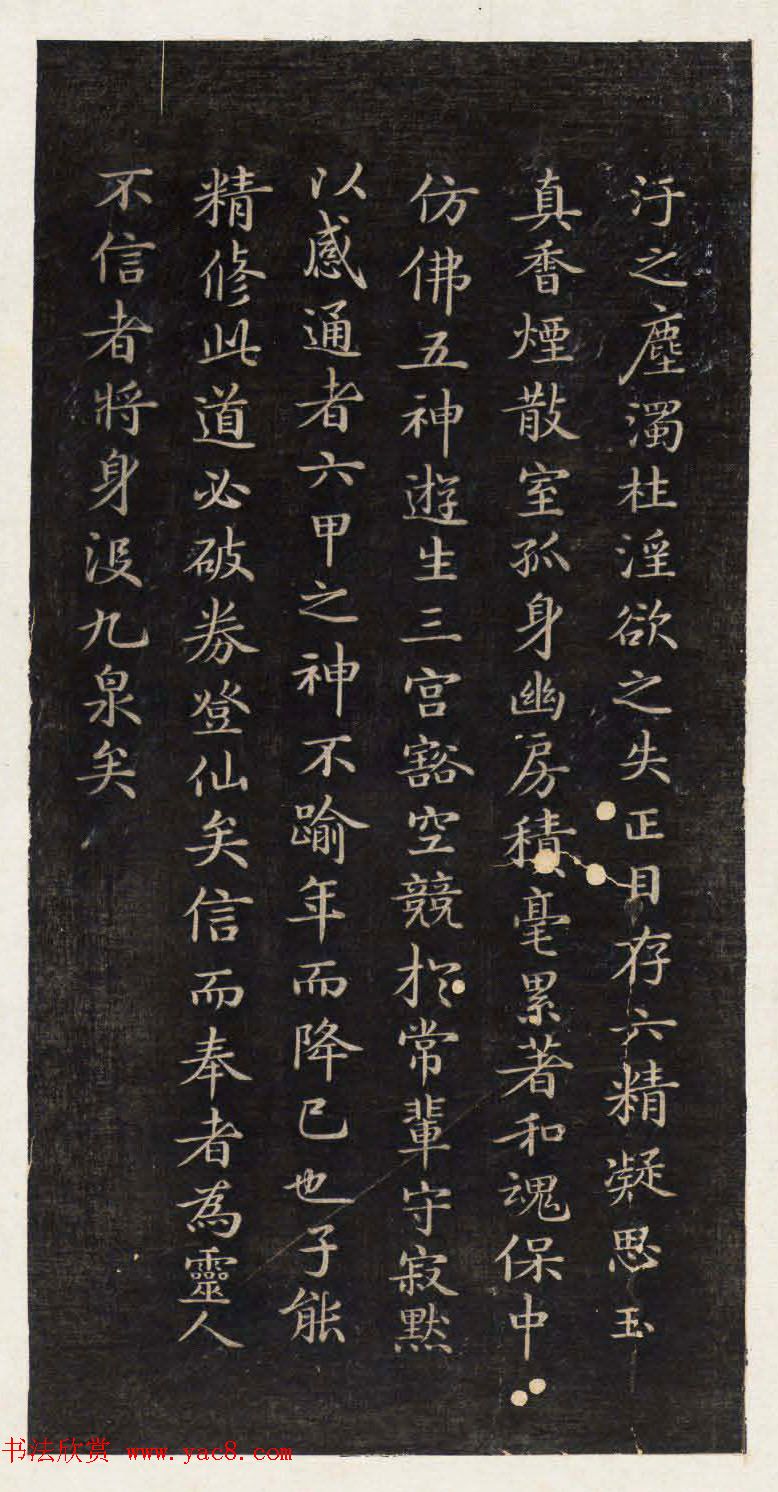 汙之塵濁杜淫欲之失正目存六精凝思玉
真香煙散室孤身幽房積毫累著和魂保中
仿佛五神遊生三宮豁空競於常輩守寂默
以感通者六甲之神不踰年而降已也子能
精修此道必破券登仙矣信而奉者為靈人
不信者將身没九泉矣
书法欣赏 www.yac8.com